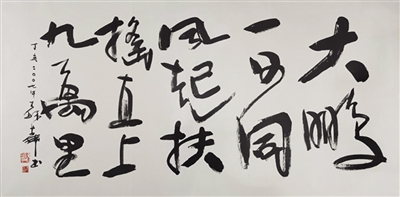 大鹏
一日同
风起扶
摇直上
九万里
丁亥二〇〇七年
书